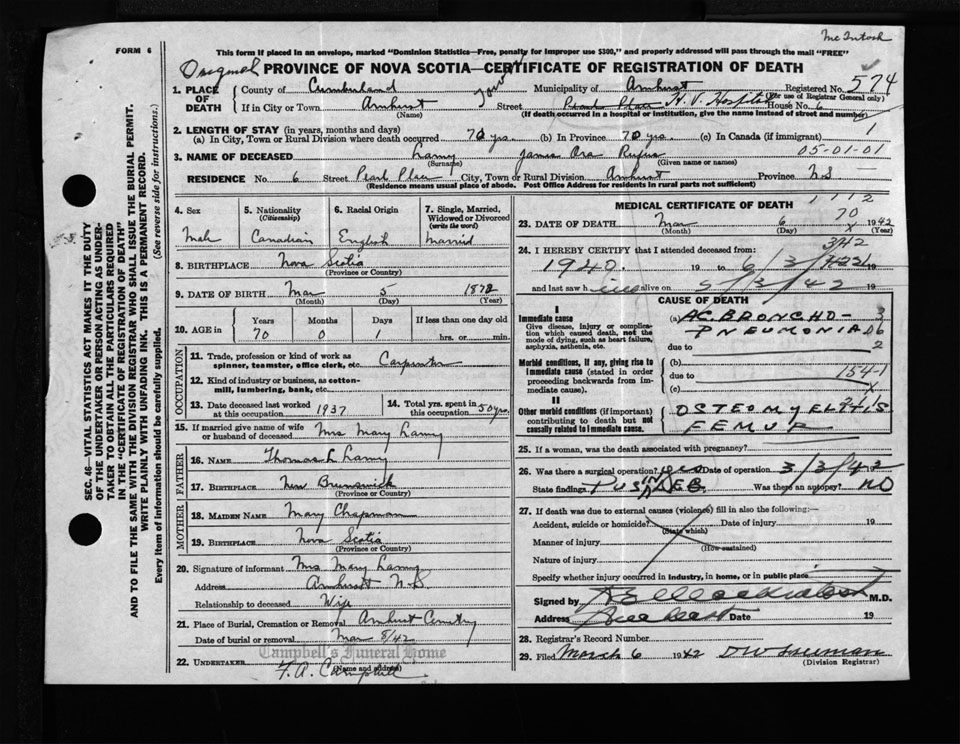 McIntosh
FORM 6
This form if placed in an envelope, marked "Dominion Statistics—Free, penalty for improper use $300," and properly addressed will pass through the mail "FREE"
Original PROVINCE OF NOVA SCOTIA—CERTIFICATE OF REGISTRATION OF DEATH
1. PLACE OF DEATH County of Cumberland Municipality of Amherst Registered No. 574
(For use of Registrar General only)
If in City or Town Amherst Town Street Pearl Place H. V. Hospital House No. 6
(Name) (If death occurred in a hospital or institution, give the name instead of street and number)
2. LENGTH OF STAY (in years, months and days)
(a) In City, Town or Rural Division where death occurred 70 yrs. (b) In Province 70 yrs. (c) In Canada (if immigrant) 1
3. NAME OF DECEASED Lamy James Ora Rufus 05-01-01
(Surname) (Given name or names)
RESIDENCE No. 6 Street Pearl Place City, Town or Rural Division Amherst Province N.S
(Residence means usual place of abode. Post Office Address for residents in rural parts not sufficient)
4. Sex
Male
5. Nationality (Citizenship)
Canadian
6. Racial Origin
English
7. Single, Married, Widowed or Divorced (write the word)
Married
8. BIRTHPLACE Nova Scotia
(Province or Country)
9. DATE OF BIRTH Mar 5 1872
(Month) (Day) (Year)
10. AGE in Years Months Days If less than one day old
70 0 hrs. or min.
OCCUPATION
11. Trade, profession or kind of work as spinner, teamster, office clerk, etc. Carpenter
12. Kind of industry or business, as cotton-mill, lumbering, bank, etc.
13. Date deceased last worked at this occupation 1937
14. Total yrs. spent in this occupation 50 yrs.
15. If married give name of wife or husband of deceased Mrs Mary Lamy
FATHER
16. NAME Thomas L Lamy
17. BIRTHPLACE New Brunswick
(Province or Country)
MOTHER
18. MAIDEN NAME Mary Chapman
19. BIRTHPLACE Nova Scotia
(Province or Country)
20. Signature of informant Mrs Mary Lamy
Address Amherst N.S
Relationship to deceased Wife
21. Place of Burial, Cremation or Removal Amherst Cemetry
Date of burial or removal Mar 8/42
Campbell's Funeral Home
22. UNDERTAKER F. A. Campbell
(Name and address)
MEDICAL CERTIFICATE OF DEATH 1112
70
23. DATE OF DEATH Mar 6 1942
(Month) (Day) (Year)
24. I HEREBY CERTIFY that I attended deceased from:
1940. 19 to 6/3/ 19
and last saw h im alive on 5/3/42 19
CAUSE OF DEATH
I
Immediate cause
Give disease, injury or complication which caused death, not the mode of dying, such as heart failure, asphyxia, asthenia, etc.
(a) AC. BRONCHO-
PNEUMONIA
due to
Morbid conditions, if any, giving rise to Immediate cause (stated in order proceeding backwards from immediate cause).
(b)
due to 154-1
(c)
II
Other morbid conditions (if important) contributing to death but not causally related to Immediate cause.
OSTEOMYELITIS
FEMUR
25. If a woman, was the death associated with pregnancy?
26. Was there a surgical operation? yes Date of operation 3/3/42
State findings PUS IN Was there an autopsy? NO
27. If death was due to external causes (violence) fill in also the following:—
Accident, suicide or homicide? Date of injury 19
(State which)
Manner of injury
(How sustained)
Nature of injury
Specify whether injury occurred in industry, in home, or in public place
Signed by M.D.
Address Date 19
28. Registrar's Record Number
29. Filed March 6 1942
(Division Registrar)
SEC. 46—VITAL STATISTICS ACT MAKES IT THE DUTY
OF THE UNDERTAKER OR PERSON ACTING AS UNDER-
TAKER TO OBTAIN ALL THE PARTICULARS REQUIRED
IN THE "CERTIFICATE OF REGISTRATION OF DEATH"
AND TO FILE THE SAME WITH THE DIVISION REGISTRAR WHO SHALL ISSUE THE BURIAL PERMIT.
WRITE PLAINLY WITH UNFADING INK. THIS IS A PERMANENT RECORD.
Every item of information should be carefully supplied. (See reverse side for instructions.)